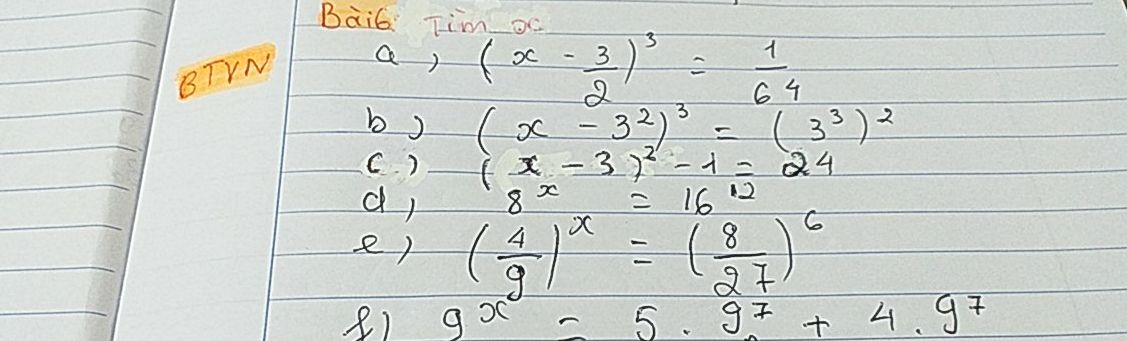 Bài 6: Tìm x
BTVN
a, (x - 3/2)³ = 1/64
b) (x - 3²)³ = (3³)²
c) (x - 3)² - 1 = 24
d, 8ˣ = 16¹²
e) (4/9)ˣ = (8/27)⁶
f) 9ˣ = 5 . 9⁷ + 4 . 9⁷